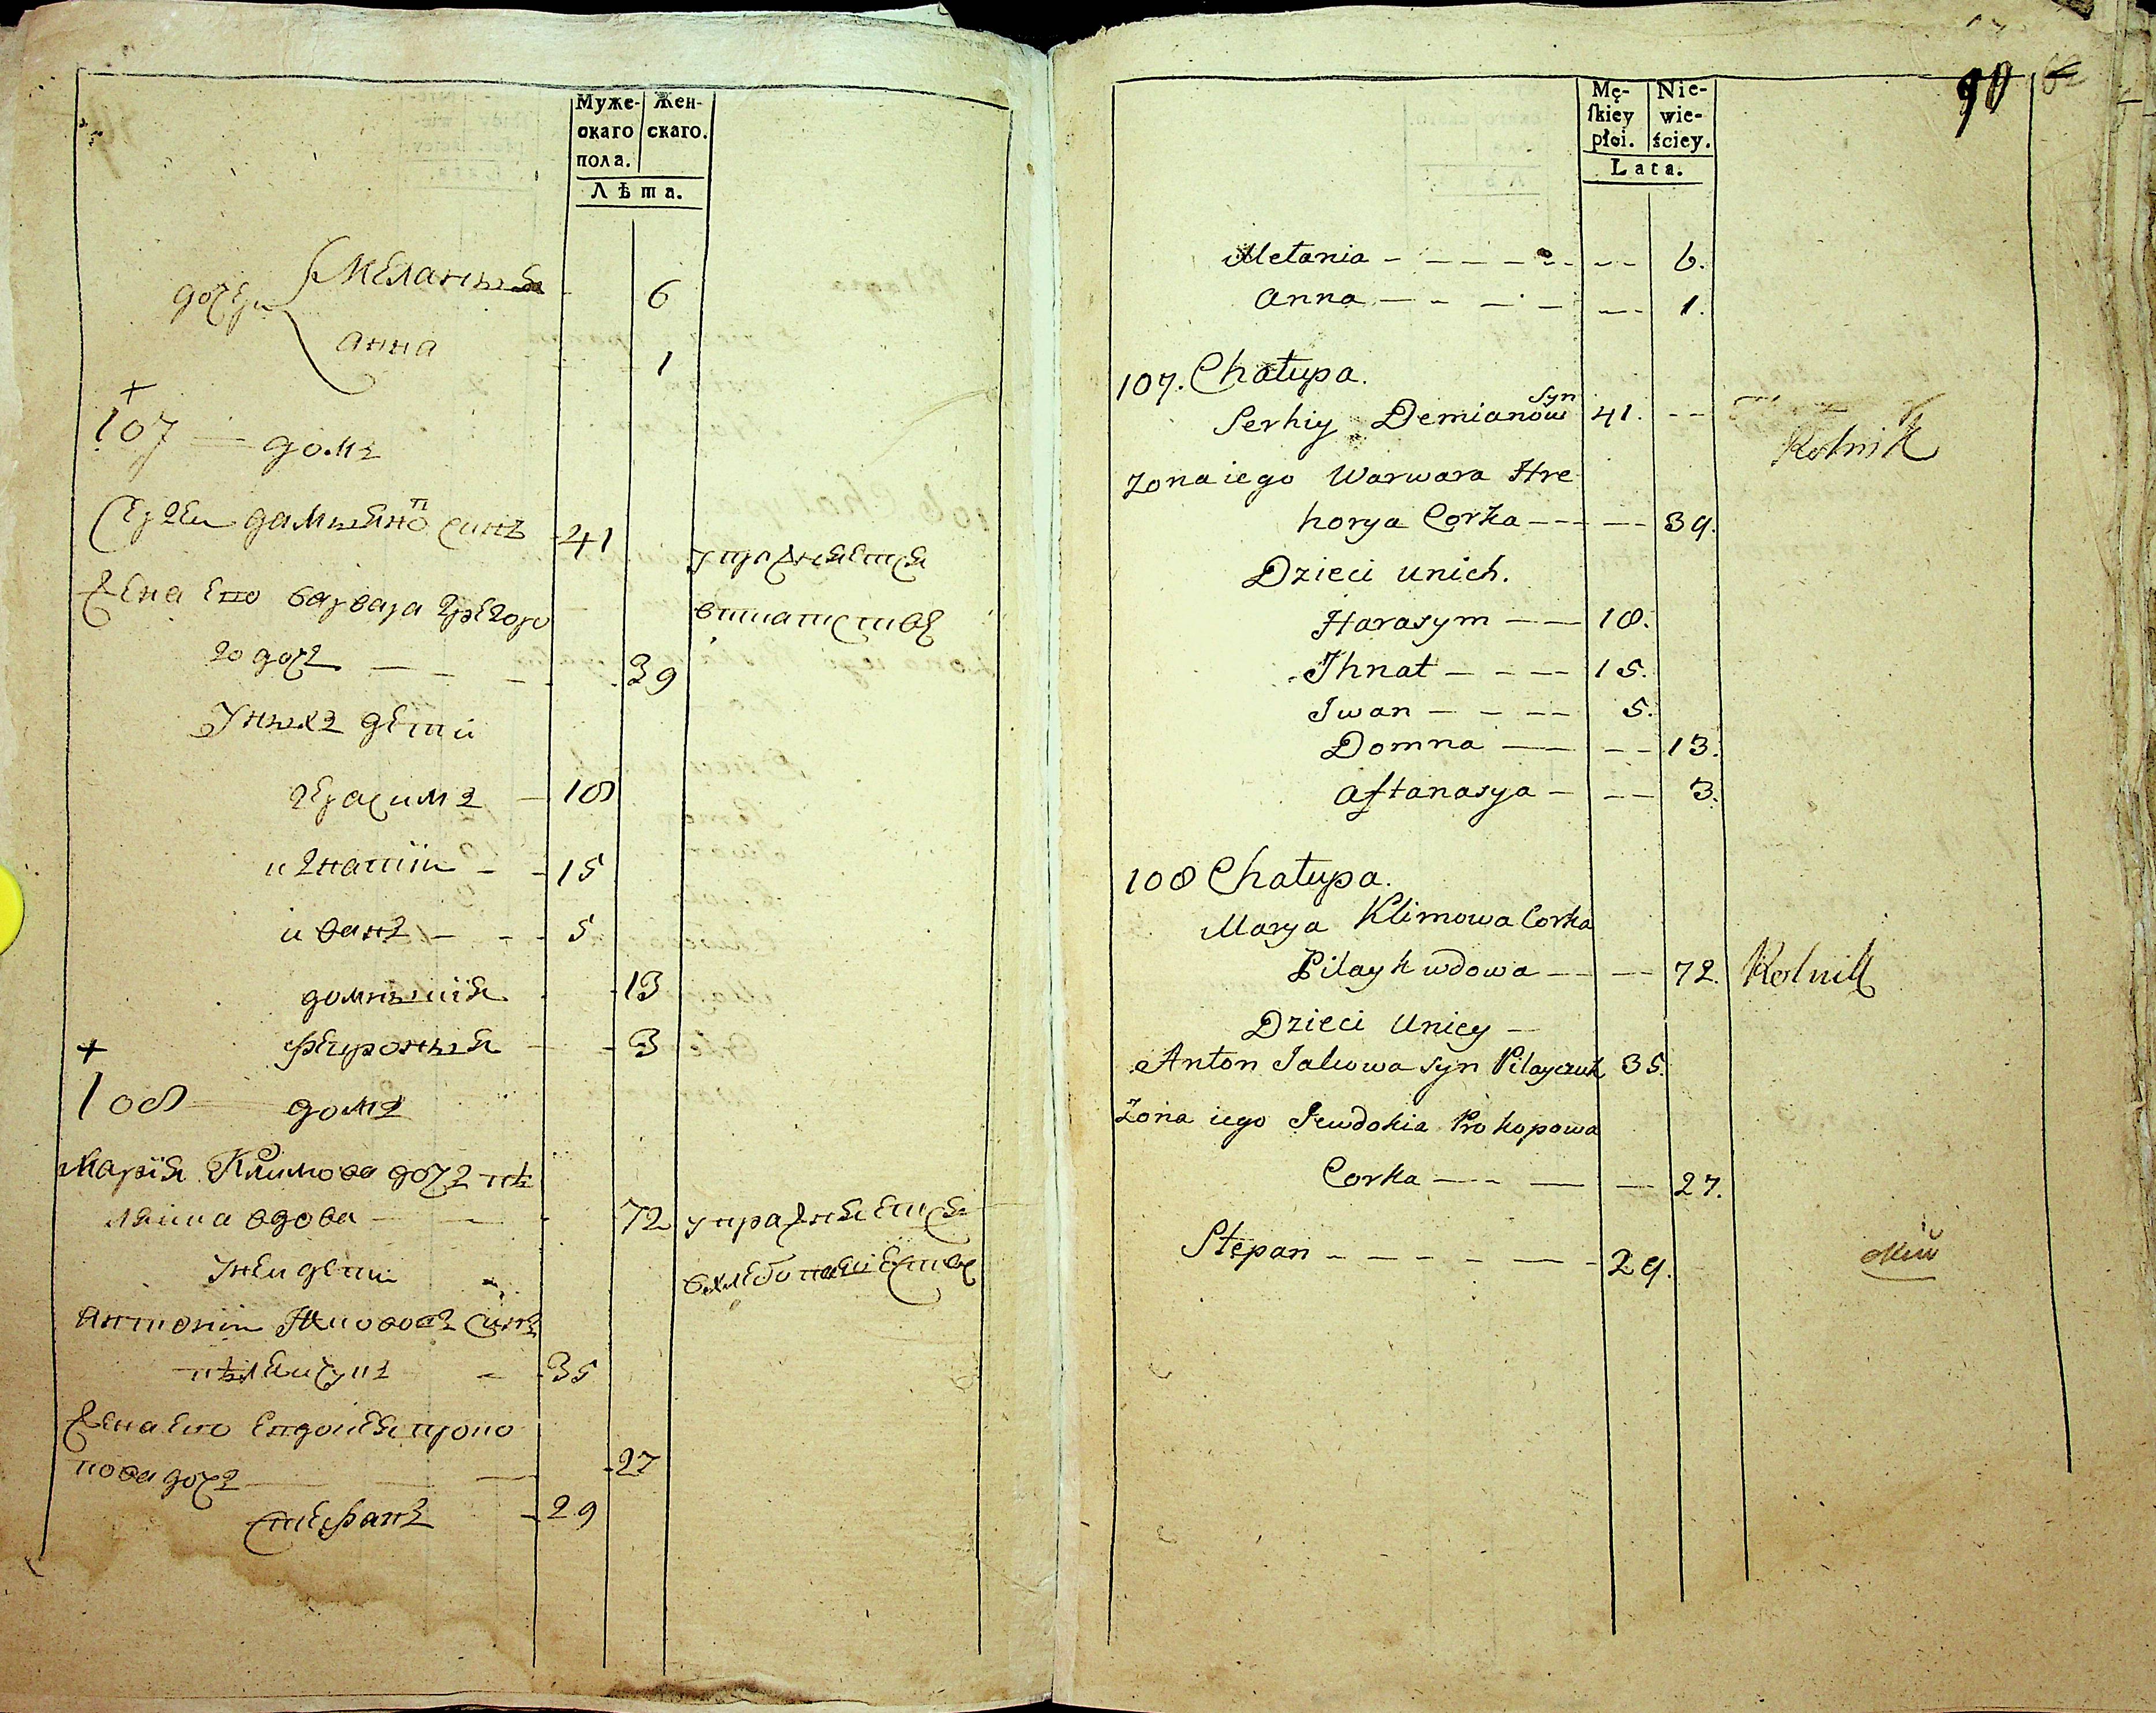 Муже-
скаго
пола.
Жен-
скаго.
Лѣта.
дочери
Меланыя 6
анна 1
107 домъ
Сергеи дамыяно п синъ 41
упражняется
Жена ево варвара Грегоро
го дочъ 39
Уныхъ дети
герасимъ 18
игнатiи 15
иванъ 5
домныкiя 13
феѵрониыя 3
108 домъ
Марiя Климова дочъ пѣ
ляика вдова 72 упражняется
Унеи дети
вхлебопашестве
антонiи Яковоевъ синъ
пѣляичукъ 35
Жена ево евдокея проко
пова дочъ 27
стефанъ 29
90
Mę-
ſkiey
płci.
Nie-
wie-
ściey.
Lata.
Mełania 6.
Anna 1.
107. Chałupa.
Serhiy Demianow syn 41.
Rolnik
Zona iego Warwara Hre
horya Corka 39.
Dzieci unich.
Harasym 18.
Ihnat 15.
Iwan 5.
Domna 13.
Aftanasya 3.
108 Chałupa.
Marya Klimowa Corka
Pilayk wdowa 72. Rolnik
Dzieci Uniey
Anton Jakowa syn Pilayczuk 35.
Zona iego Jewdokia Prokopowa
Corka 27.
Stepan 29.